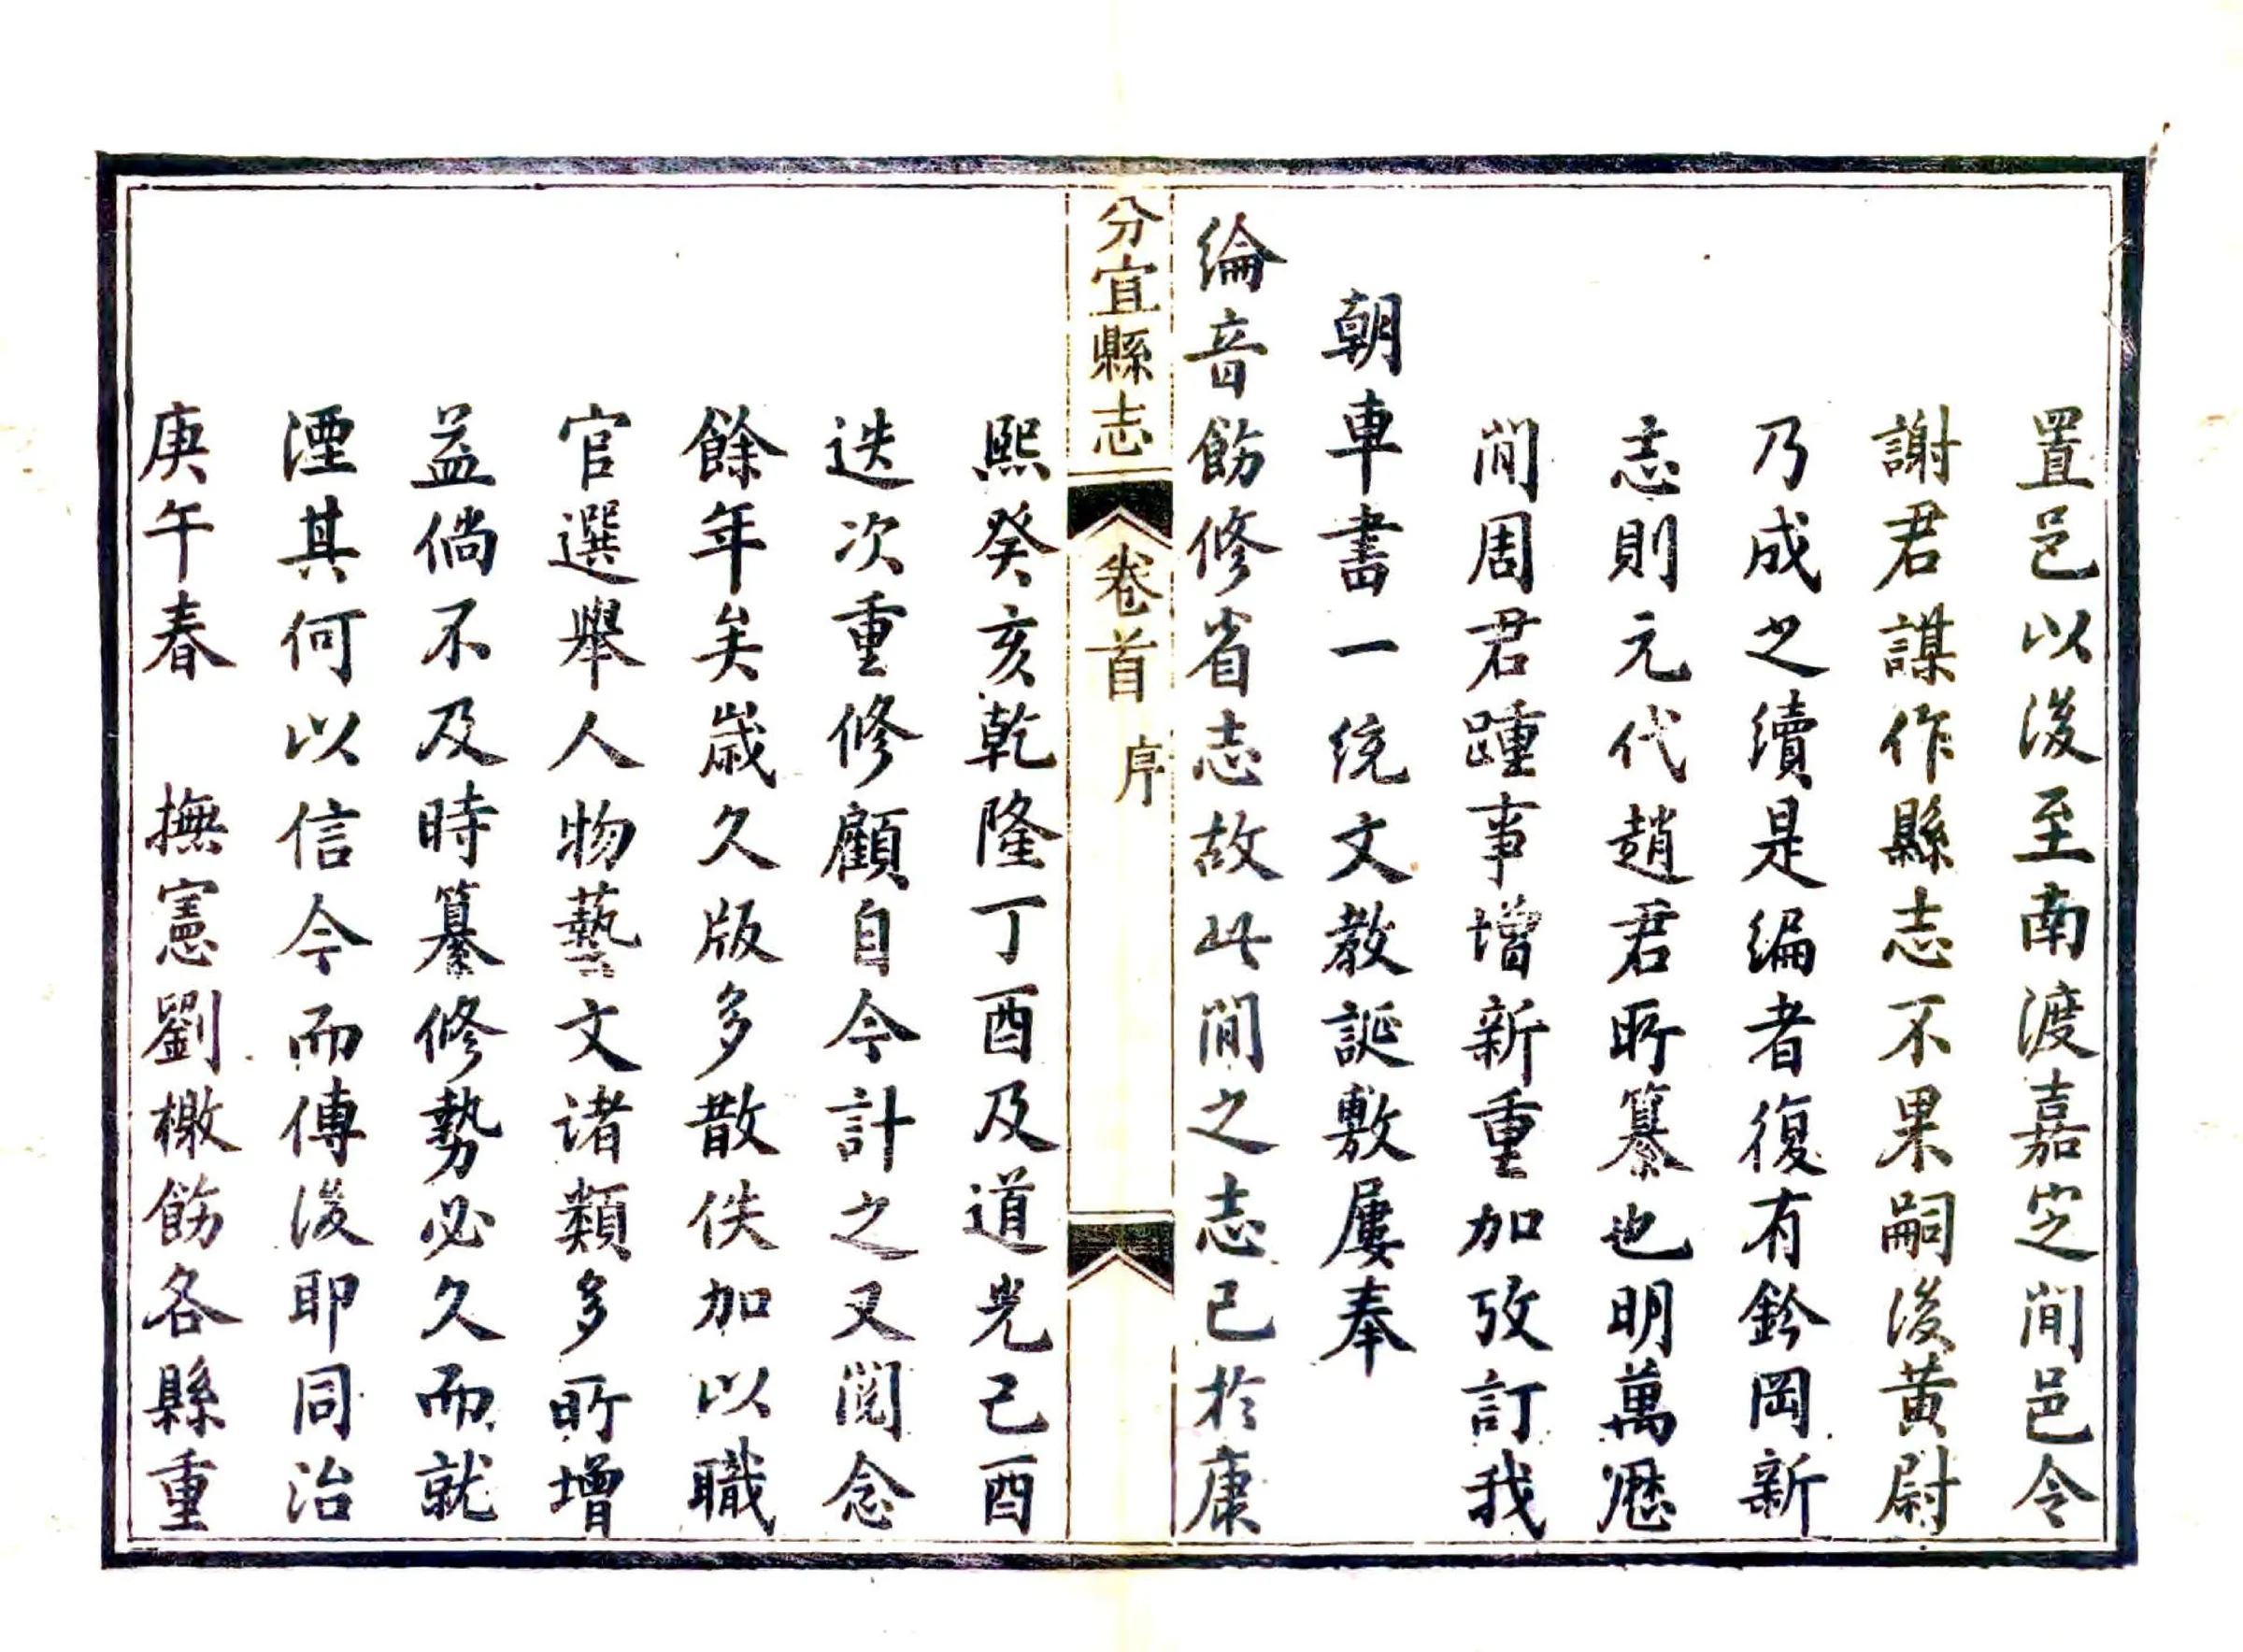 置邑以後至南渡嘉定間邑令
謝君謀作縣志不果嗣後黃尉
乃成之續是編者復有鈐岡新
志則元代趙君所纂也明萬歷
間周君踵事增新重加攷訂我
朝車書一統文教誕敷屢奉
綸音飭修省志故此間之志已於康
分宜縣志 卷首 序
熙癸亥乾隆丁酉及道光己酉
迭次重修顧自今計之又閱念
餘年矣歲久版多散佚加以職
官選舉人物藝文諸類多所增
益倘不及時纂修勢必久而就
湮其何以信今而傳後耶同治
庚午春 撫憲劉檄飭各縣重